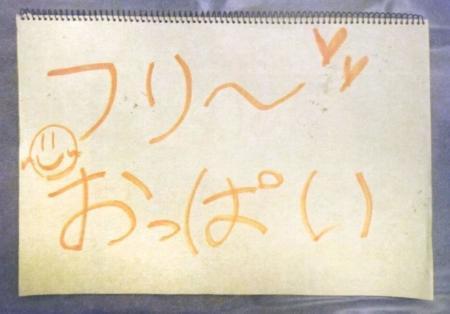 フリ〜
おっぱい